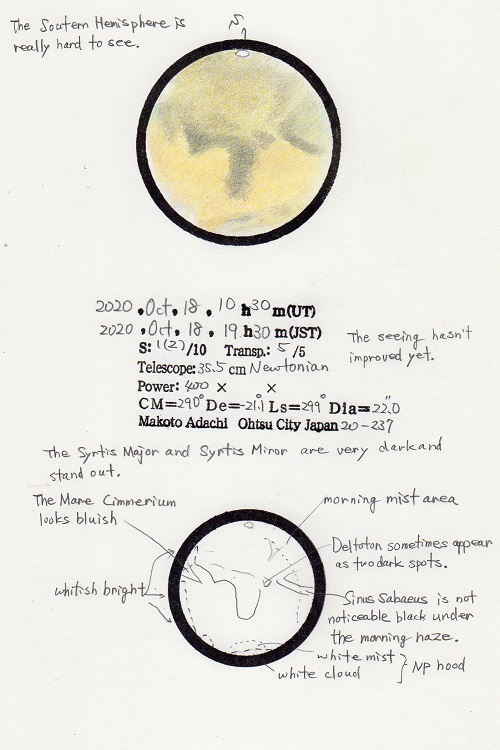 The Soutern Hemisphere is
really hard to see.
S
2020 . Oct. 18 . 10 h 30 m(UT)
2020 . Oct. 18 . 19 h 30 m(JST)
S: 1(2)/10 Transp.: 5 /5
Telescope: 35.5 cm Newtonian
Power: 400 × ×
CM=290° De=-21.1 Ls=299° Dia=22.0"
Makoto Adachi Ohtsu City Japan 20-237
The seeing hasn't
improved yet.
The Syrtis Major and Syrtis Miror are very dark and
stand out.
The Mare Cimmerium
looks bluish
morning mist area
Deltoton sometimes appear
as two dark spots.
whitish bright
Sinus Sabaeus is not
noticeable black under
the morning haze.
white mist
white cloud
NP hood